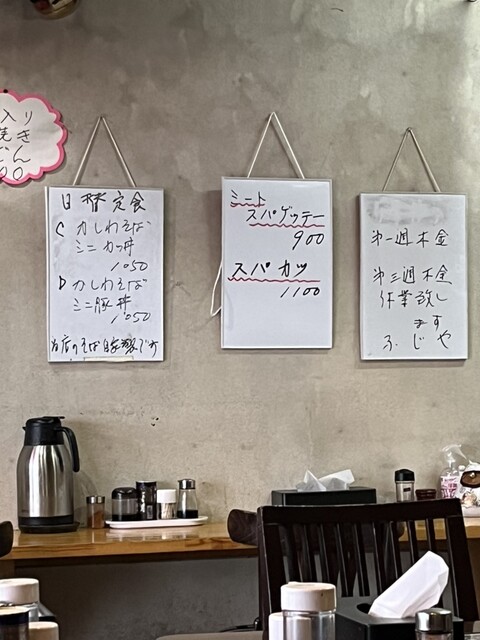 入り
焼き
日替定食
C かしわそば
ミニ カツ丼
1050
D かしわそば
ミニ豚丼
1050
当店のそば自家製です
ミート
スパゲッテー
900
スパカツ
1100
第一週木金
第三週木金
作業致し
ます
ふじや